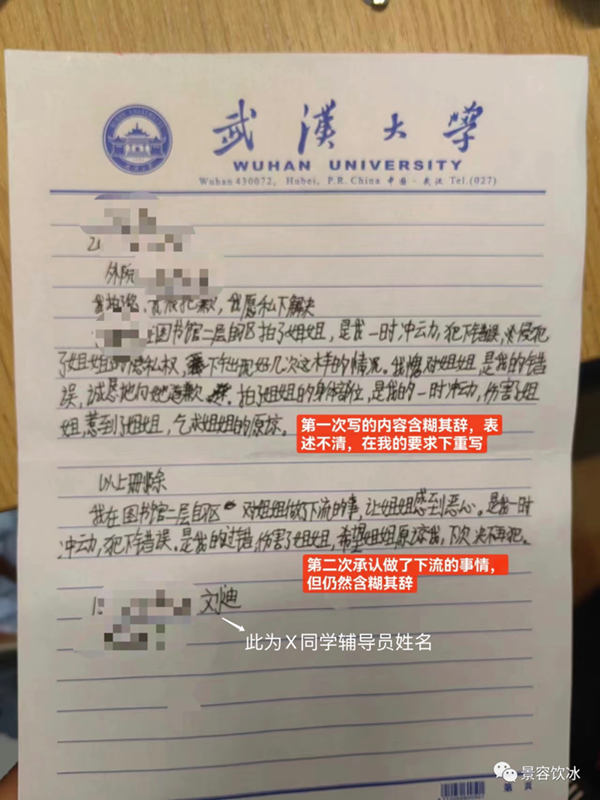 武漢大學
WUHAN UNIVERSITY
Wuhan 430072, Hubei, P.R. China 中国·武汉 Tel.(027)
外院
我愿私下解决
在图书馆二层自区拍了姐姐,是我一时冲动,犯下错误,侵犯
了姐姐的隐私权,下午出现好几次这样的情况。我愧对姐姐,是我的错
误,诚恳地向她道歉。拍了姐姐的身体部位,是我的一时冲动,伤害了姐
姐,惹到了姐姐,乞求姐姐的原谅。
第一次写的内容含糊其辞,表
述不清,在我的要求下重写
以上删除
我在图书馆二层自区对姐姐做了下流的事,让姐姐感到恶心。是我一时
冲动,犯下错误。是我的过错伤害了姐姐,希望姐姐原谅我,下次决不再犯。
第二次承认做了下流的事情,
但仍然含糊其辞
刘迪
此为X同学辅导员姓名
景容饮冰
第 页